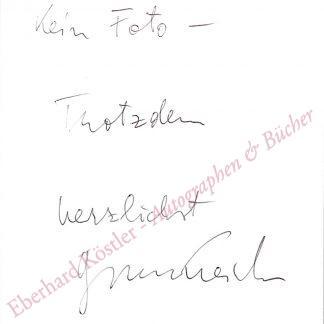 Kein Foto –
Trotzdem
herzlichst
Eberhard Köstler - Autographen & Bücher